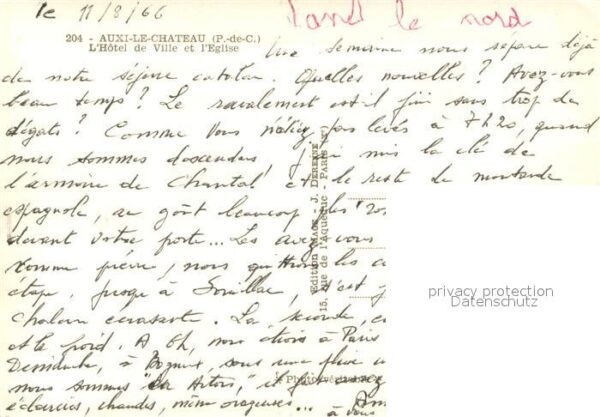 le 11/8/66
Tand le nord
204 - AUXI-LE-CHATEAU (P.-de-C.)
L'Hôtel de Ville et l'Eglise
Une semaine nous sépare déjà
de notre séjour catalan. Quelles nouvelles ? Avez-vous
beau temps ? Le ravalement est-il fini sans trop de
dégats ? Comme vous n'étiez pas levés à 7h20, quand
nous sommes descendus, j'ai mis la clé de
l'armoire de Chantal et le reste de moutarde
espagnole, au goût beaucoup plus
devant votre porte... Les avez-vous
comme prévu, nous quittions les
étape, jusqu'à Souillac, s'est
chaleur écrasante. La seconde,
et le froid. A 6h, nous étions à Paris
Dimanche, à sous une pluie
nous sommes "en Artois", et
éclaircies, chaudes, même orageuses...
à vous
Edition MAGE - J. DERENNE
15, Rue de l'Aqueduc - PARIS
privacy protection
Datenschutz